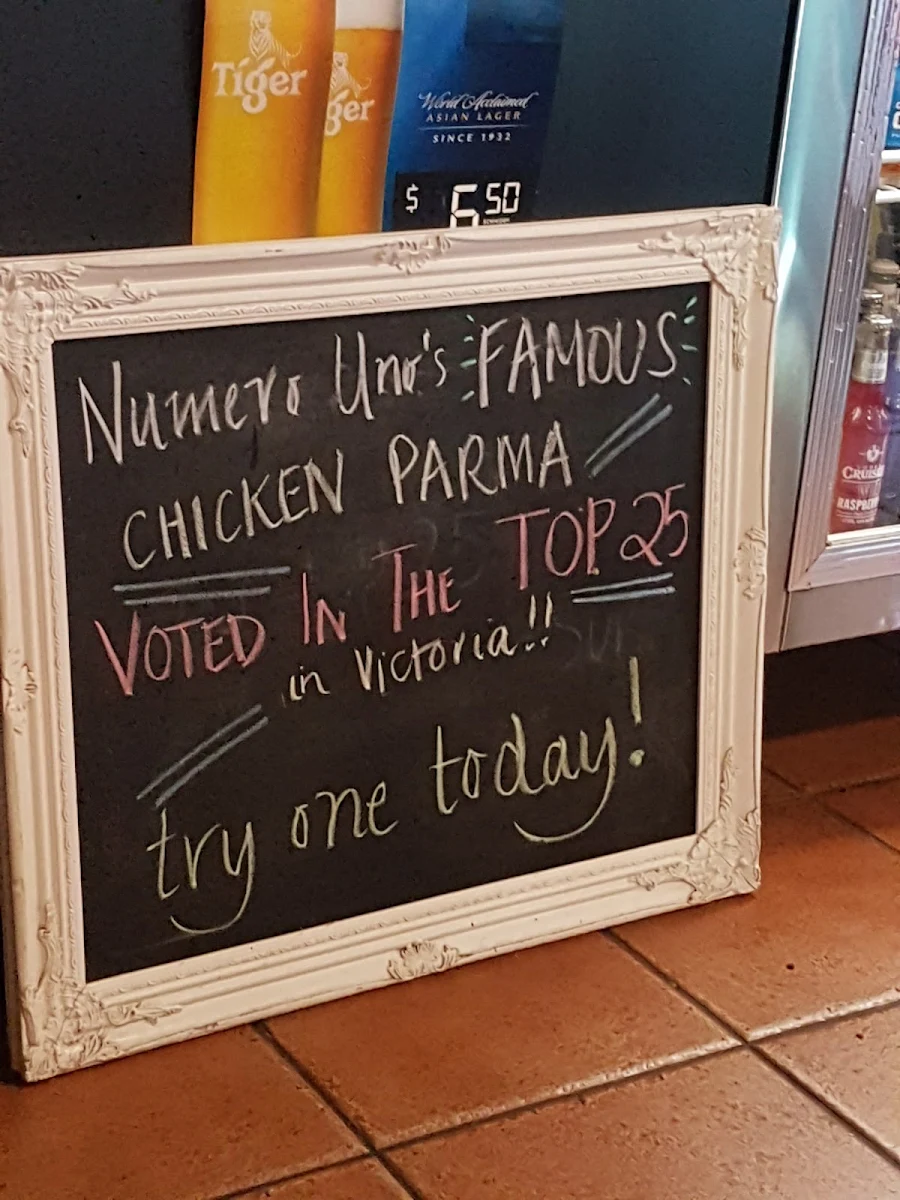 Tiger
ger
World Acclaimed
ASIAN LAGER
SINCE 1932
$ 6 50
Numero Uno's FAMOUS
CHICKEN PARMA
VOTED IN THE TOP 25
in Victoria!!
try one today!
CRUIS
RASPBE